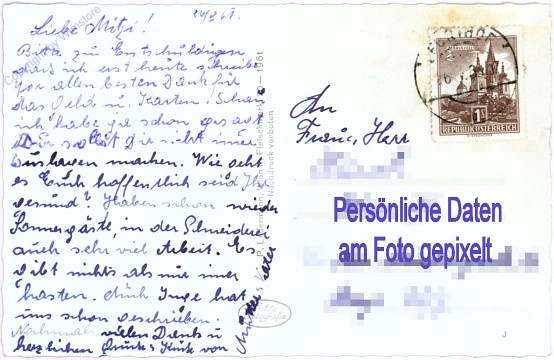 24/2 61.
Liebe Mitzi!
Bitte zu Entschuldigen
das ich erst heute schreibe
Vor allen besten Dank für
das Geld u. Karten! Schau
ich habe ja schon gesagt
Du sollst dir nicht immer
auslagen machen. Wie geht
es Euch hoffentlich seid Ihr
gesund? Haben schon wieder
Sommergäste, in der Schneiderei
auch sehr viel Arbeit. Es
gibt nichts als nur immer
hasten. Auch Inge hat
uns schon geschrieben.
Nochmal vielen Dank u
herzlichen Gruß & Kuß von
Mutter & Vater
Copyright by
P. Ledermann, Wien I, Fleischmarkt 1961
Nachdruck verboten
An
Frau, Herr
Persönliche Daten
am Foto gepixelt
1S
REPUBLIK ÖSTERREICH